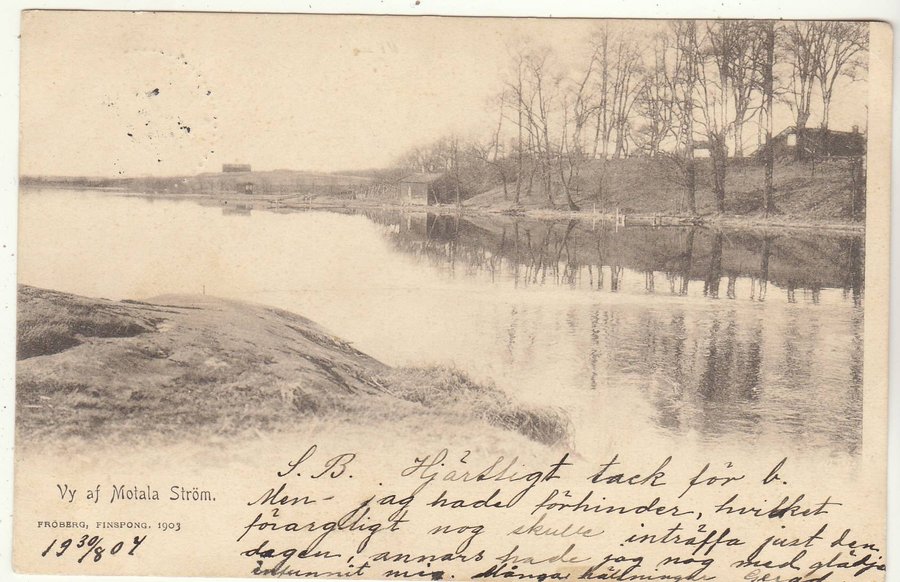 S. B. Hjärtligt tack för b.
Men - jag hade förhinder, hvilket
förargligt nog skulle inträffa just den
dagen, annars hade jag nog med glädje
infunnit mig. Många hälsningar
Vy af Motala Ström.
FRÖBERG, FINSPONG. 1903
19 30/8 04